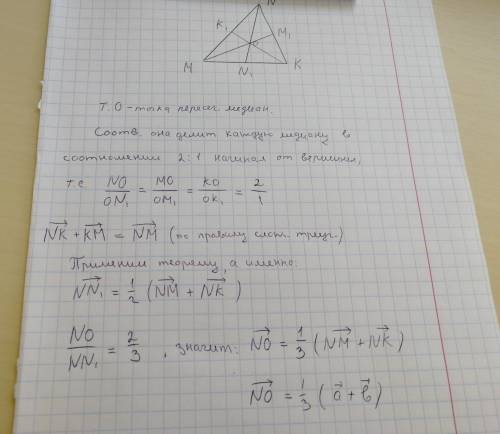 N
K₁
M₁
O
M
N₁
K
Т. О - точка пересеч. медиан.
Соотв. она делит каждую медиану в
соотношении 2:1 начиная от вершины,
т.е. NO/ON₁ = MO/OM₁ = KO/OK₁ = 2/1
NK⃗ + KM⃗ = NM⃗ (по правилу слож. треуг.)
Применим теорему, а именно:
NN₁⃗ = 1/2 (NM⃗ + NK⃗)
NO/NN₁ = 2/3, значит: NO⃗ = 1/3 (NM⃗ + NK⃗)
NO⃗ = 1/3 (a⃗ + b⃗)